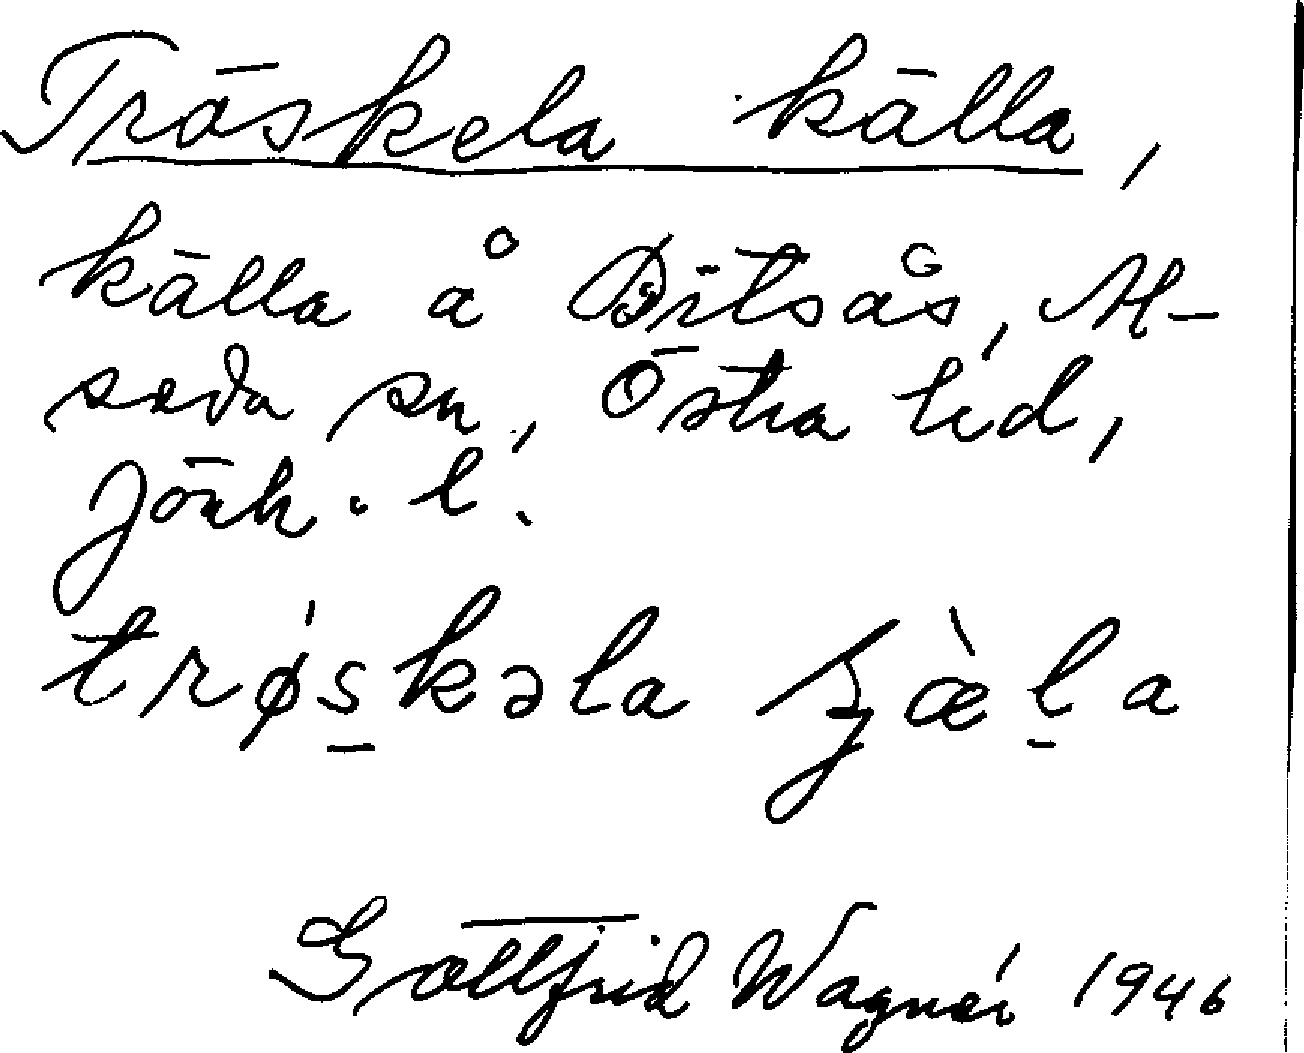 Tröskela källa,
källa å Ditsås, Al-
seda sn, Östra hd,
Jönk. l.
trø̍s̱kəla ꞩæ̀ḻa
Gottfrid Wagnér 1946